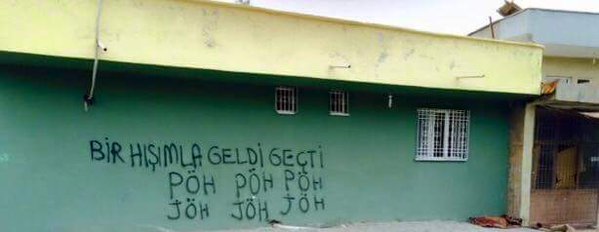 BİR HIŞIMLA GELDİ GEÇTİ
PÖH PÖH PÖH
JÖH JÖH JÖH